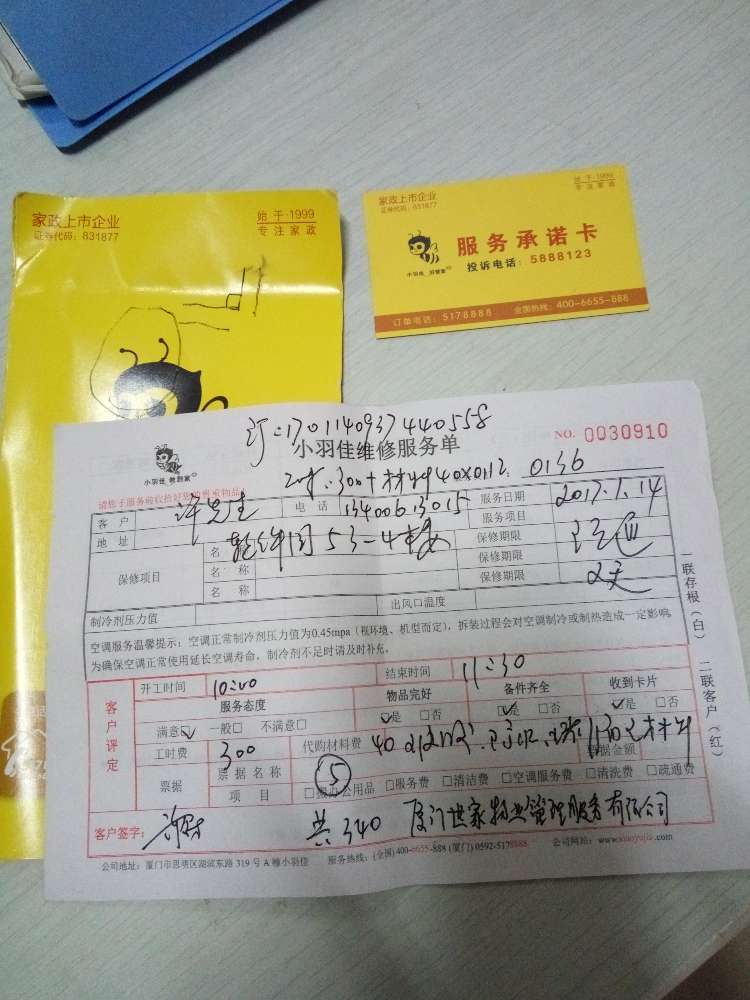 家政上市企业
证券代码：831877
始于·1999
专注家政
家政上市企业
证券代码：831877
始于·1999
专注家政
服务承诺卡
投诉电话：5888123
小羽佳 好管家
订单电话：5178888 全国热线：400-6655-888
订：1701140937440558
小羽佳维修服务单
NO. 0030910
小羽佳 散到家
300+材料40 0112. 0136
客户 许先生 电话 13400613015 服务日期 2017.1.14
地址 软件园53-4楼 服务项目
保修项目 名称 保修期限
名称 保修期限
名称 保修期限
制冷剂压力值 出风口温度
空调服务温馨提示：空调正常制冷剂压力值为0.45mpa（视环境、机型而定），拆装过程会对空调制冷或制热造成一定影响，
为确保空调正常使用延长空调寿命，制冷剂不足时请及时补充。
一联存根（白） 二联客户（红）
客户评定
开工时间 10:00 结束时间 11:30
服务态度 物品完好 备件齐全 收到卡片
满意☑ 一般□ 不满意□ ☑是 □否 ☑是 □否 ☑是 □否
工时费 300 代购材料费 40
票据 票据名称 票据金额
项目 ⑤ 办公用品 □服务费 □清洁费 □空调服务费 □清洗费 □疏通费
客户签字： 共340 厦门世家物业管理服务有限公司
公司地址：厦门市思明区湖滨东路319号A幢小羽佳 服务热线：(全国)400-6655-888 (厦门)0592-5178888 公司网站：www.xiaoyujia.com